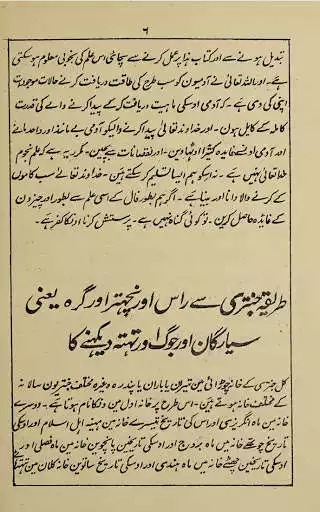 ۶
تبدیل ہونے سے اور کتاب ہذا پر عمل کرنے سے سچائی اس علم کی بخوبی معلوم ہوسکتی
ہے۔ اور اللہ تعالیٰ نے آدمیوں کو سب طرح کی طاقت دریافت کرنے حالات موجودات
اپنی کی دی ہے۔ کہ آدمی اوسکی ماہیت دریافت کرکے پیدا کرنے والے کی قدرت
کاملہ کے قایل ہون۔ اور خداوند تعالیٰ پیدا کرنے والیکو آدمی بے مانند اور واحد مانے
اور آدمی اونسے فایدہ کثیر اوٹھاوین۔ اور نقصانات سے بچین۔ مگر یہ ہے کہ علم نجوم
خدا تعالیٰ نہیں ہے۔ نہ اسکو ہم ایسا تسلیم کرسکتے ہین۔ خداوند تعالیٰ سب کاموں
کے کرنے والا دانا اور بینا ہے۔ اگر ہم بطور فال کے اسی علم سے اور چیزون
کے فایدہ حاصل کرین۔ تو کوئی گناہ نہیں ہے۔ پرستش کرنا اونکا کفر ہے۔
طریقہ جنتری سے راس اور نچھتر اور گرہ یعنی
سیارگان اور جوگ اور تہتہ دیکہنے کا
کل جنتری کے خانہ چوڑائی مین تیران یا باران یا پندرہ وغیرہ مختلف جنتریون سالانہ
کے مختلف خانہ ہوتے ہین۔ اس طرح پر خانہ اول مین دنکا نام ہوتا ہے۔ دوسرے
خانہ مین ماہ انگریزی اور اس کی تاریخ تیسرے خانہ مین مہینہ اہل اسلام اور اوسکی
تاریخ چوتھے خانہ مین ماہ اور اوسکی تاریخین پانچوین خانہ مین ماہ فصلی اور
اوسکی تاریخین چھٹے خانہ مین ماہ ہندی اور اوسکی تاریخ ساتوین خانہ کلان مین